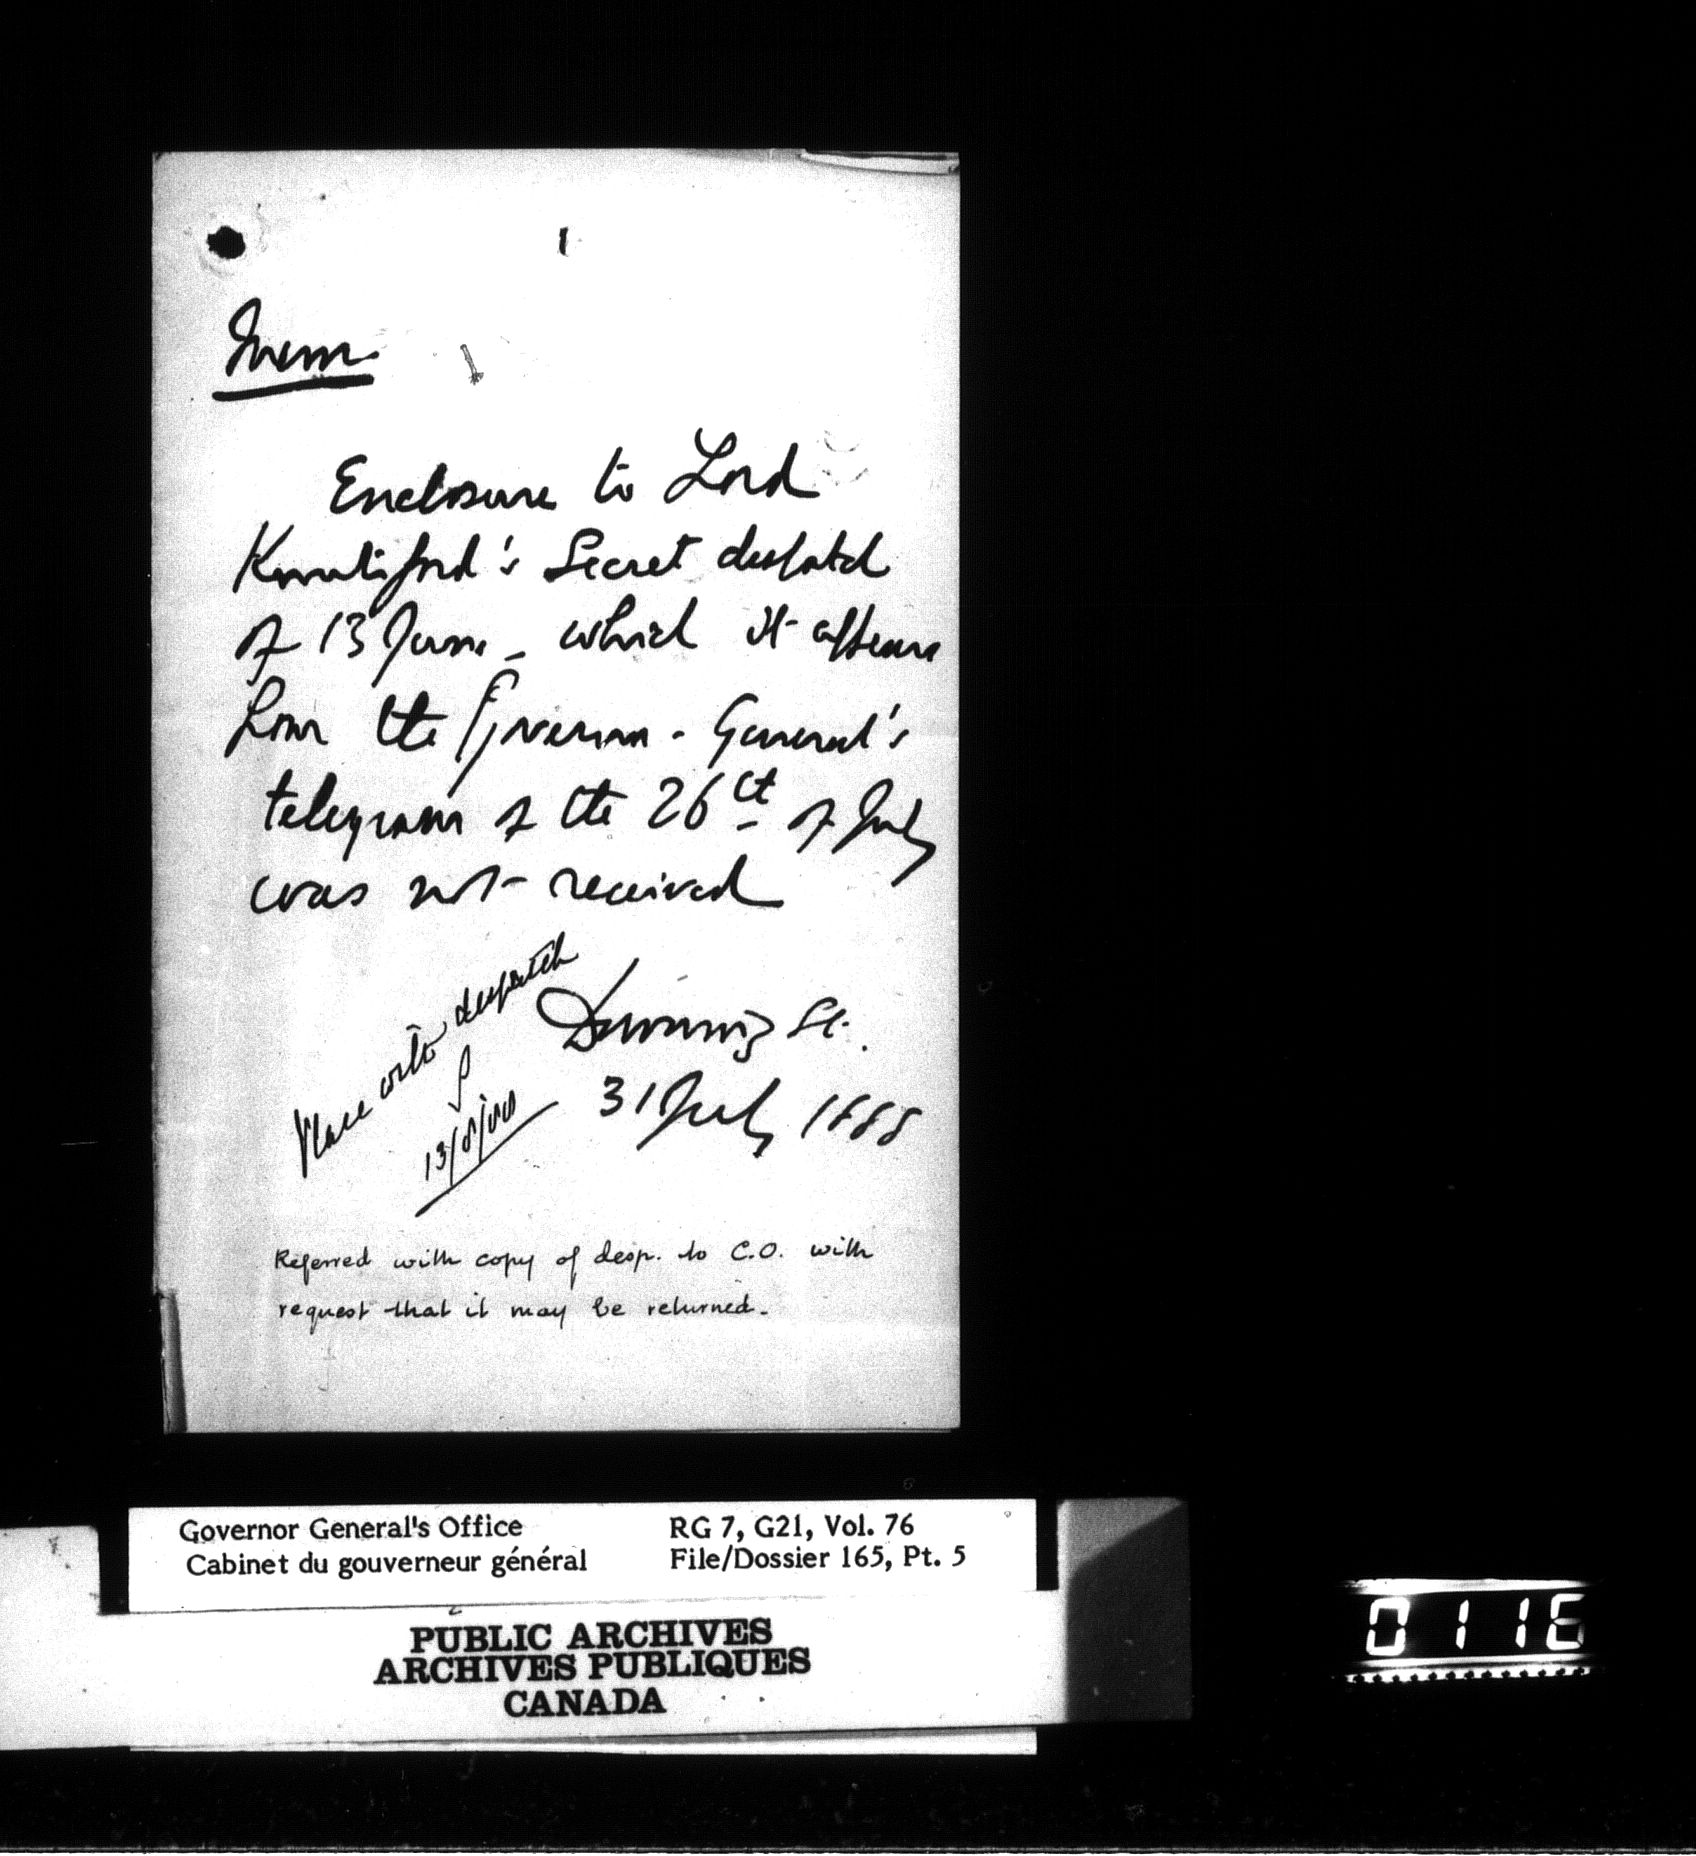 Mem
Enclosure to Lord
Knutsford's Secret despatch
of 13 June - which it appears
from the Governor-General's
telegram of the 26th of July
was not received
Place with despatch
13/8/88
Downing St.
31 July 1888
Referred with copy of desp. to C.O. with
request that it may be returned.
Governor General's Office
Cabinet du gouverneur général
RG 7, G21, Vol. 76
File/Dossier 165, Pt. 5
PUBLIC ARCHIVES
ARCHIVES PUBLIQUES
CANADA
0116